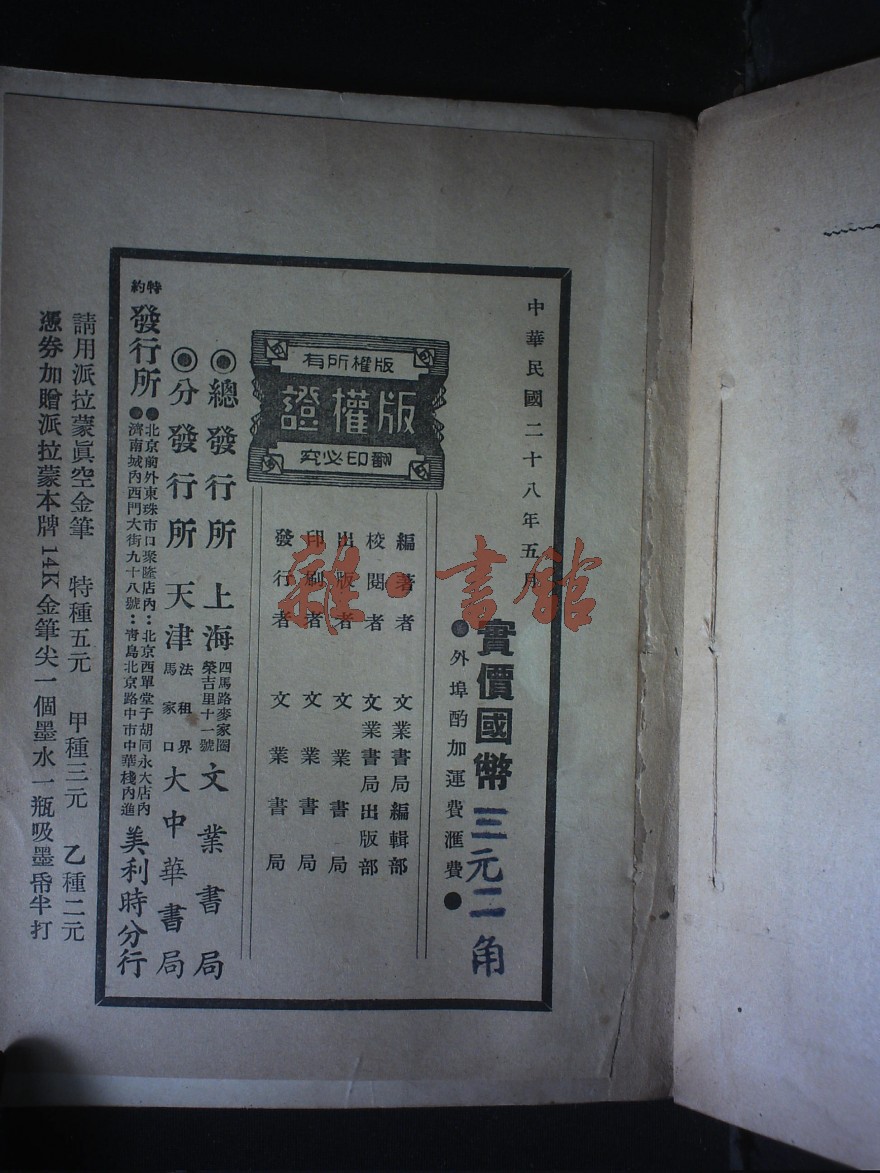 中華民國二十八年五月
實價國幣三元二角
●外埠酌加運費滙費●
編著者 文業書局編輯部
校閱者 文業書局出版部
出版者 文業書局
印刷者 文業書局
發行者 文業書局
版權所有
版權證
翻印必究
◉總發行所 上海 四馬路麥家圈榮吉里十一號 文業書局
◉分發行所 天津 法租界馬家口 大中華書局
特約發行所 ●北京前外東珠市口聚隆店內:北京西單堂子胡同永大店內
●濟南城內西門大街九十八號:靑島北京路中市中華棧內進 美利時分行
請用派拉蒙眞空金筆 特種五元 甲種三元 乙種二元
憑券加贈派拉蒙本牌14K金筆尖一個墨水一瓶吸墨帋半打
雜·書館